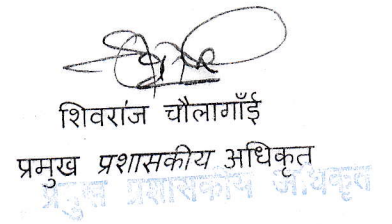 शिवरांज चौलागाँई
प्रमुख प्रशासकीय अधिकृत
प्रमुख प्रशासकीय अधिकृत